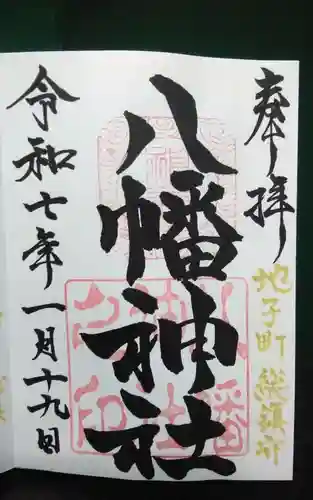 奉拝
地子町 総鎮守
八幡神社
令和七年一月十九日